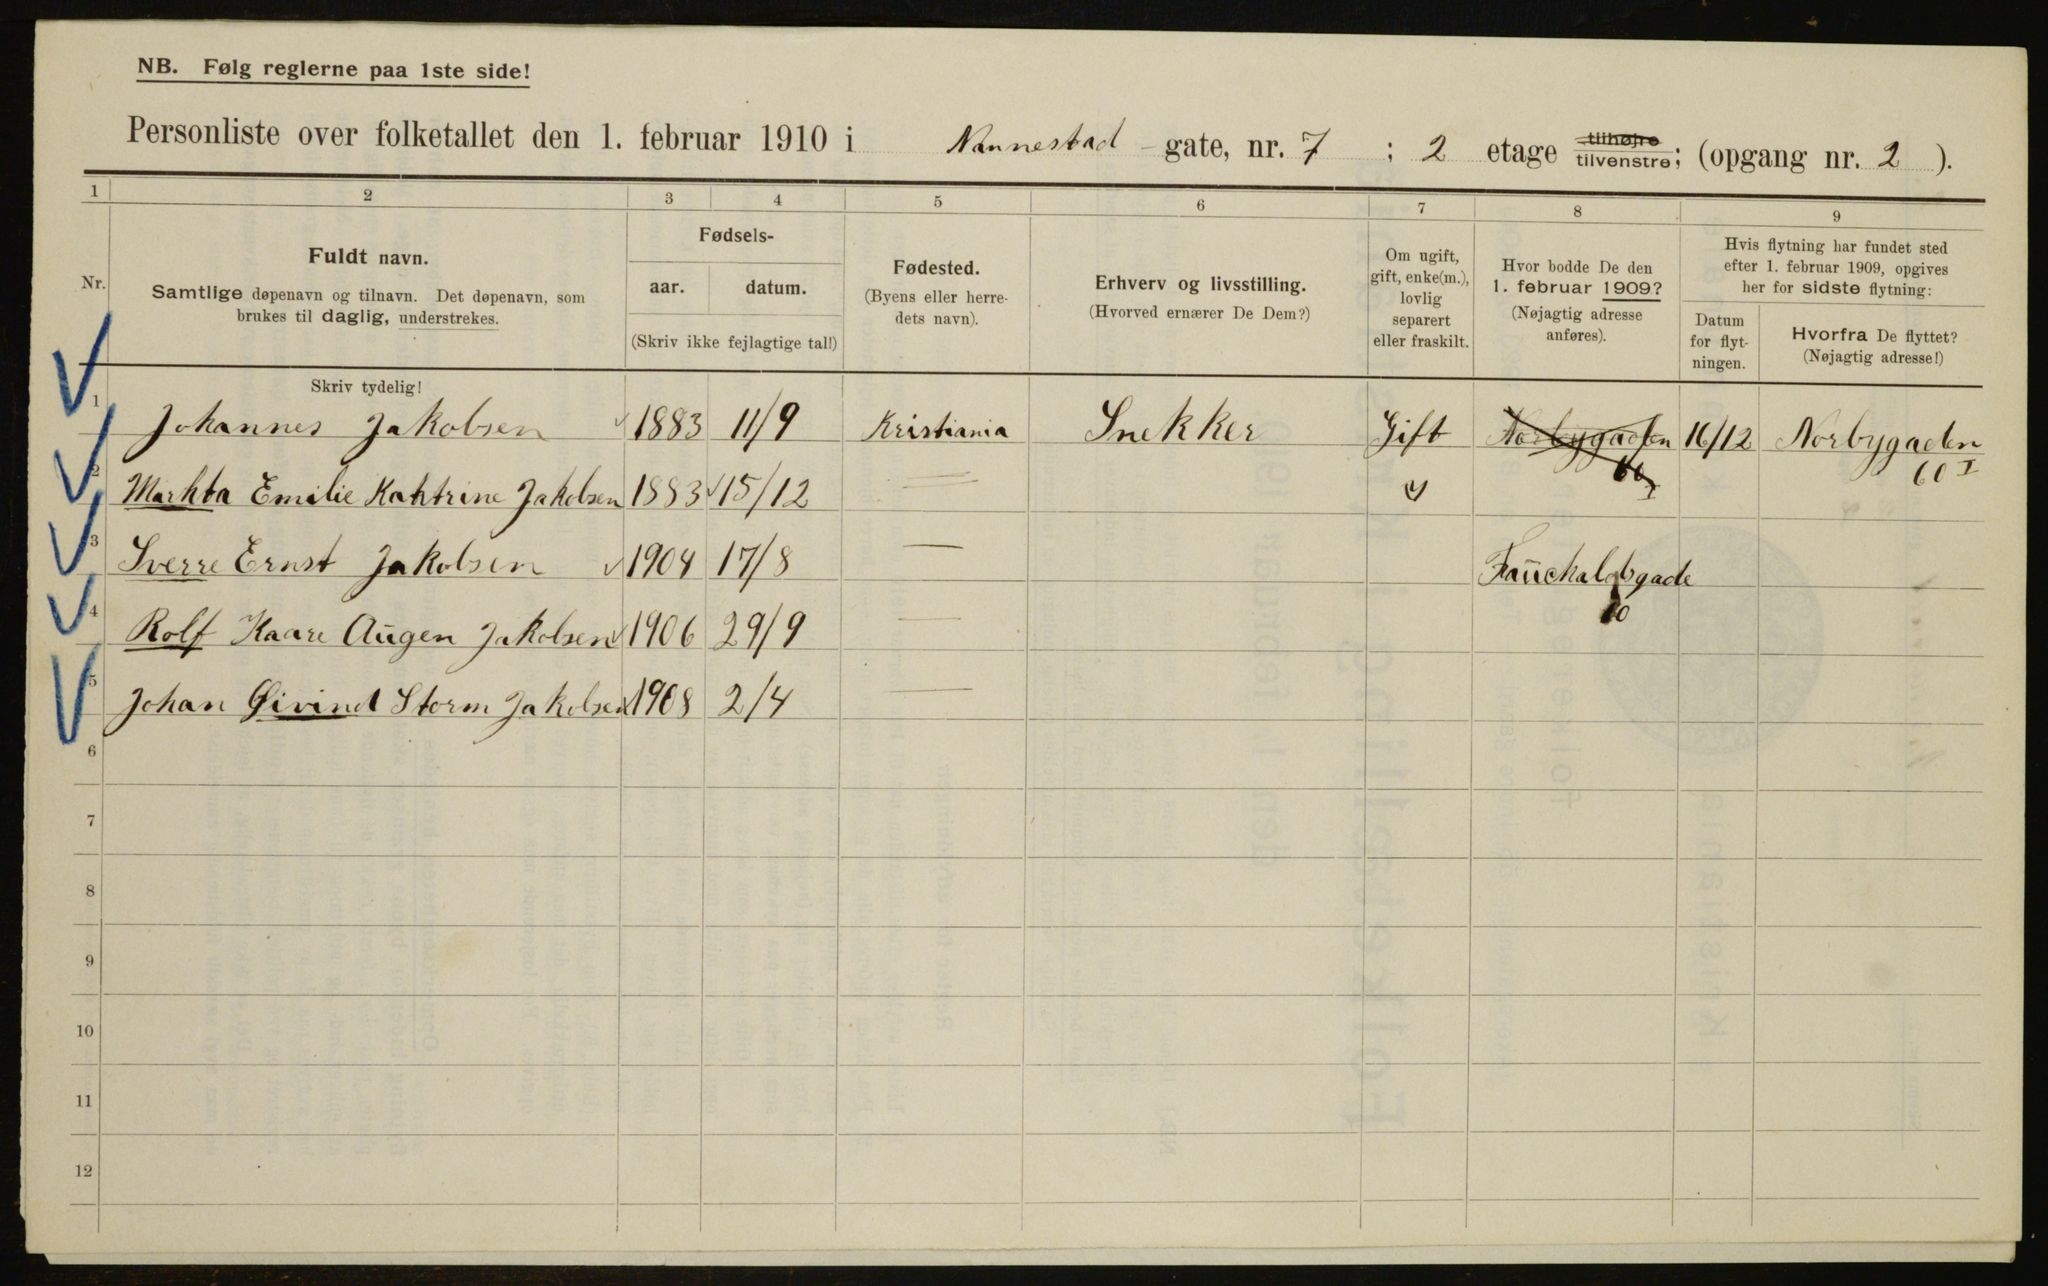 NB. Følg reglerne paa 1ste side!
Personliste over folketallet den 1. februar 1910 i Nannestad gate, nr. 7 ; 2 etage tilhøjre tilvenstre; (opgang nr. 2 ).
1 2 3 4 5 6 7 8 9
Nr.
Fuldt navn.
Samtlige døpenavn og tilnavn. Det døpenavn, som
brukes til daglig, understrekes.
Skriv tydelig!
Fødsels-
aar. datum.
(Skriv ikke fejlagtige tal!)
Fødested.
(Byens eller herre-
dets navn).
Erhverv og livsstilling.
(Hvorved ernærer De Dem?)
Om ugift,
gift, enke(m.),
lovlig
separert
eller fraskilt.
Hvor bodde De den
1. februar 1909?
(Nøjagtig adresse
anføres).
Hvis flytning har fundet sted
efter 1. februar 1909, opgives
her for sidste flytning:
Datum
for flyt-
ningen.
Hvorfra De flyttet?
(Nøjagtig adresse!)
1 Johannes Jakobsen 1883 11/9 Kristiania Snekker Gift Norbygaden 60 I 16/12 Norbygaden
60 I
2 Markta Emilie Kahtrine Jakobsen 1883 15/12 — "
3 Sverre Ernst Jakobsen 1904 17/8 —
10
4 Rolf Kaare Augen Jakobsen 1906 29/9 —
5 Johan Øivind Storm Jakobsen 1908 2/4 —
6
7
8
9
10
11
12